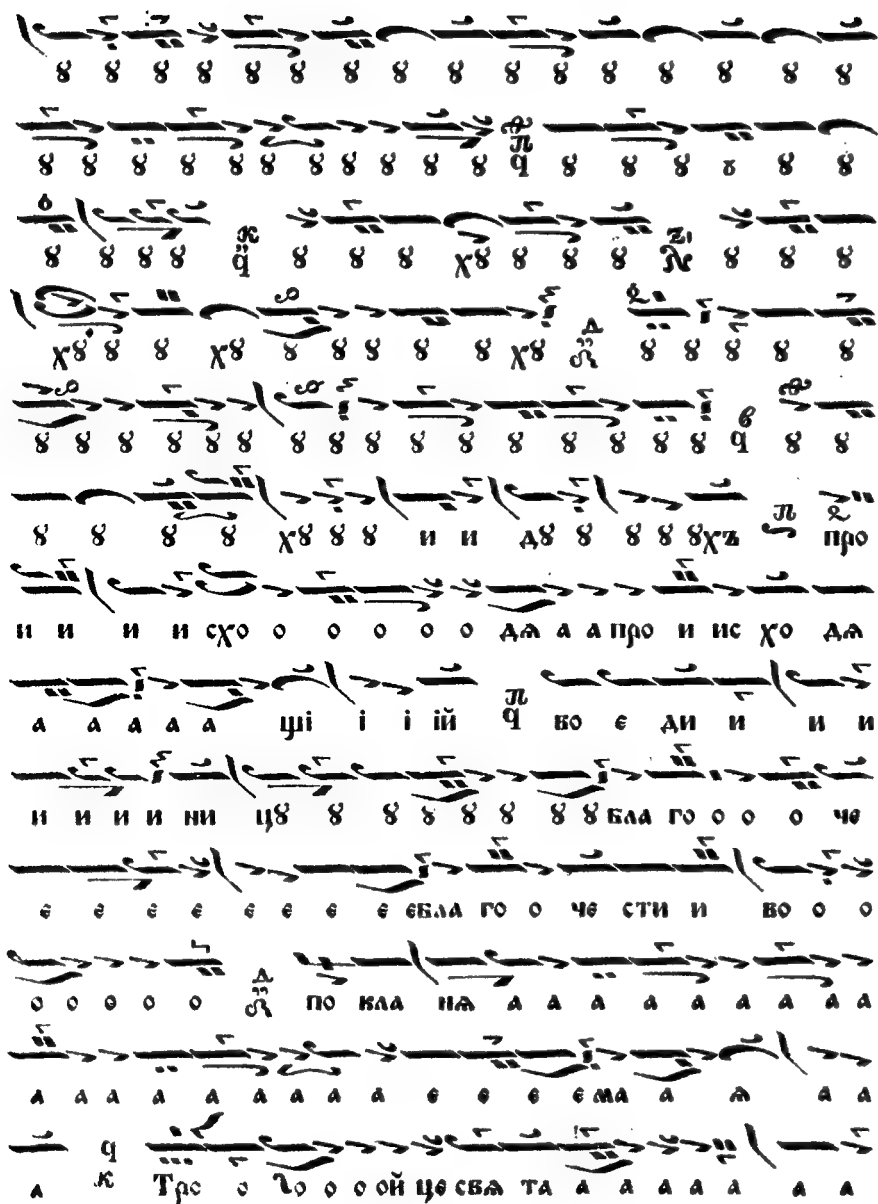 ꙋ ꙋ ꙋ ꙋ ꙋ ꙋ ꙋ ꙋ ꙋ ꙋ ꙋ ꙋ ꙋ ꙋ ꙋ ꙋ
ꙋ ꙋ ꙋ ꙋ ꙋ ꙋ ꙋ ꙋ ꙋ ꙋ ꙋ п q ꙋ ꙋ ꙋ ꙋ ꙋ ꙋ
ꙋ ꙋ ꙋ ꙋ к q ꙋ ꙋ ꙋ хꙋ ꙋ ꙋ ꙋ ꙋ ꙋ ꙋ
хꙋ ꙋ ꙋ хꙋ ꙋ ꙋ ꙋ ꙋ ꙋ хꙋ д ꙋ ꙋ ꙋ ꙋ ꙋ
ꙋ ꙋ ꙋ ꙋ ꙋ ꙋ ꙋ ꙋ ꙋ ꙋ ꙋ ꙋ ꙋ ꙋ ꙋ ꙋ в q ꙋ ꙋ
ꙋ ꙋ ꙋ ꙋ хꙋ ꙋ ꙋ и и дꙋ ꙋ ꙋ ꙋ ꙋхъ п про
и и и и схо о о о о о дѧ а а про и ис хо дѧ
а а а а а щі і і ій п q во є ди и и и
и и и и ни цꙋ ꙋ ꙋ ꙋ ꙋ ꙋ ꙋ ꙋ бла го о о о че
е е е е е е е е ебла го о че сти и во о о
о о о о о д по кла нѧ а а а а а а а а
а а а а а а а а а е е е ема а ѧ а а
а q к Тро о о о о ой це свѧ та а а а а а а а